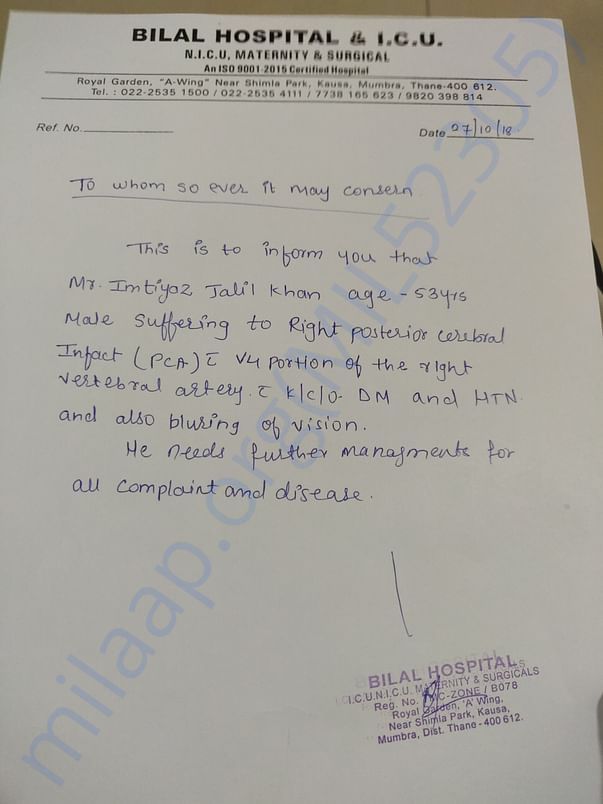 BILAL HOSPITAL & I.C.U.
N.I.C.U, MATERNITY & SURGICAL
An ISO 9001-2015 Certified Hospital
Royal Garden, "A-Wing" Near Shimla Park, Kausa, Mumbra, Thane-400 612.
Tel. : 022-2535 1500 / 022-2535 4111 / 7738 165 623 / 9820 398 814
Ref. No.
Date 07/10/18
To whom so ever it may consern
This is to inform you that
Mr. Imtiyaz Jalil Khan age - 53yrs
Male suffering to Right posterior cerebral
Infact (PCA) c̄ V4 portion of the right
vertebral artery. c̄ K/C/O- DM and HTN.
and also bluring of vision.
He needs further managments for
all complaint and disease.
BILAL HOSPITAL
I.C.U.N.I.C.U. MATERNITY & SURGICALS
Reg. No. -ZONE / B078
Royal Garden, 'A' Wing,
Near Shimla Park, Kausa,
Mumbra, Dist. Thane - 400 612.
milaap.org(MIL_52305)